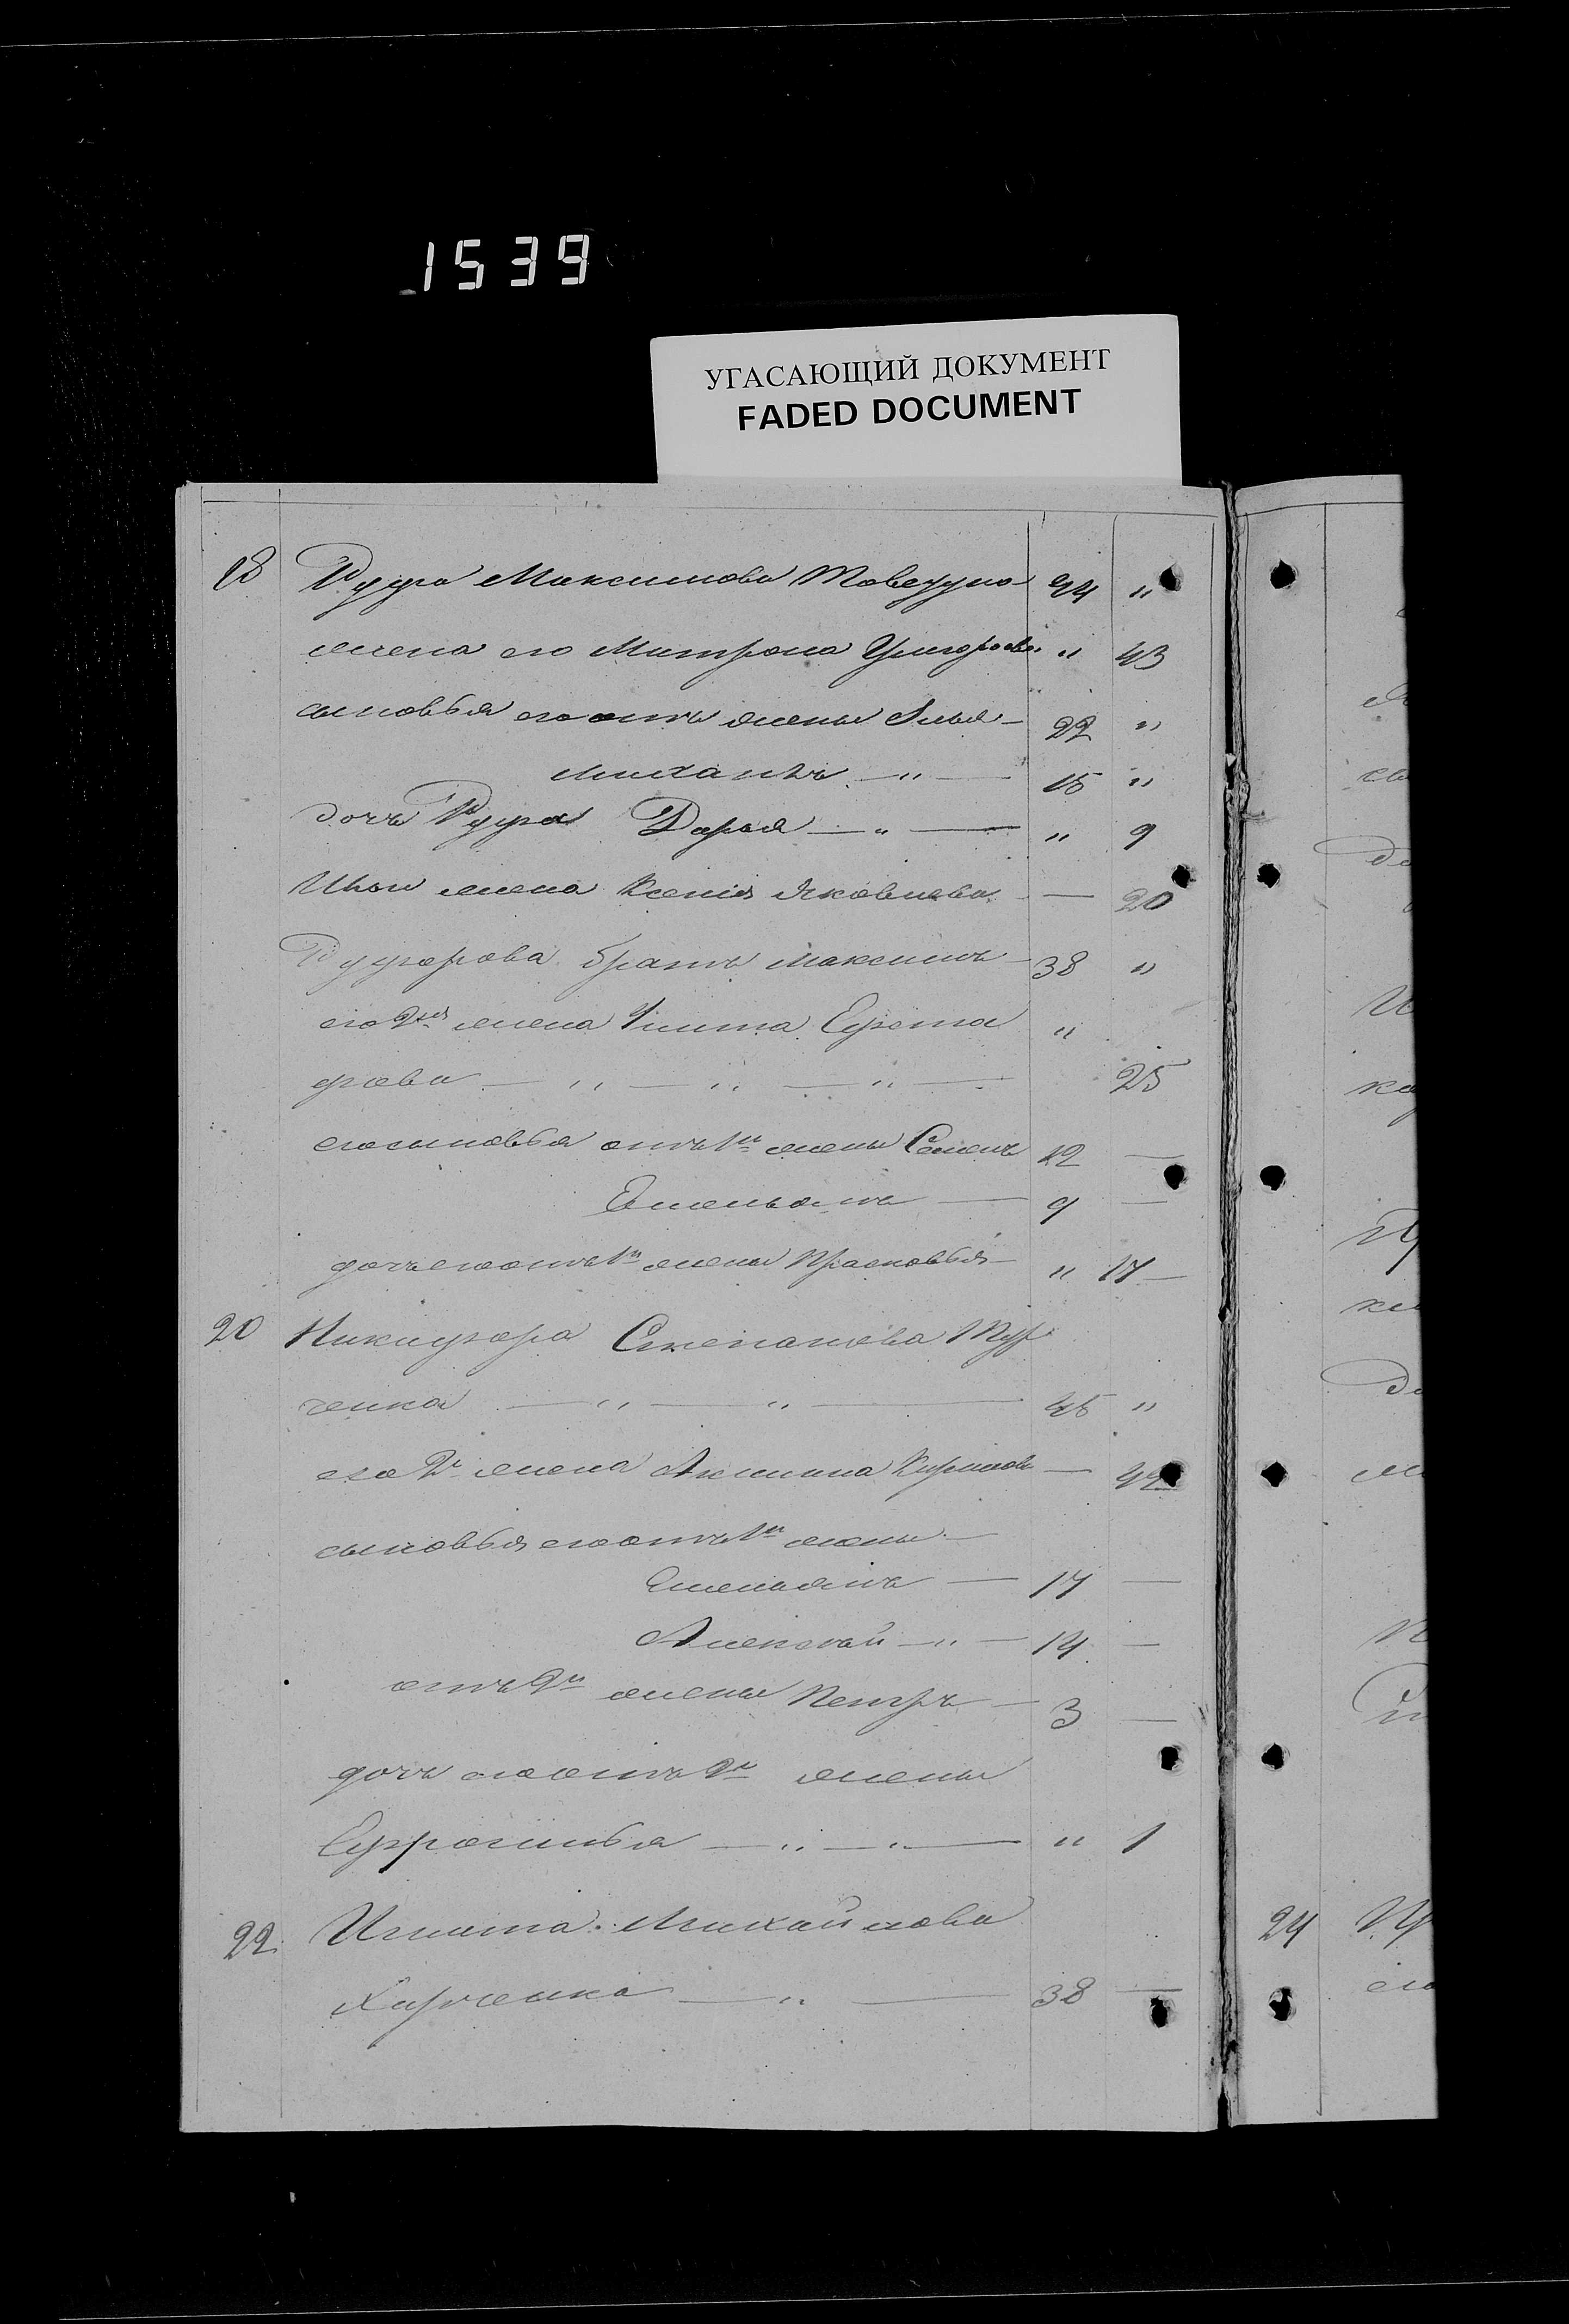 1539
УГАСАЮЩИЙ ДОКУМЕНТ
FADED DOCUMENT
18 Максимова 44 "
жена его Матрона Григорьева " 43
сыновья его отъ жены Илья 22 "
Михаилъ — " — 15 "
дочь Дарья — " — " 9
Ильи жена Ксенія Яковлева — 20
братъ Максимъ 38 "
его 2я жена "
— " — " — " — 25
его сыновья отъ 1й жены Семенъ 12 —
Емельянъ — 9 —
дочь его отъ 1й жены Прасковья " 17 —
20 Никифора Степанова Тур
ченка — " — " — 45 "
его 2я жена Аксинія — 42
сыновья его отъ 1й жены —
Емельянъ — 17 —
Алексей — " — 14 —
отъ 2й жены Петръ — 3 —
дочь его отъ 2й жены
Ефросинья — " — " — " 1
22 Игната Михайлова
Харченка — " — 38 —
24